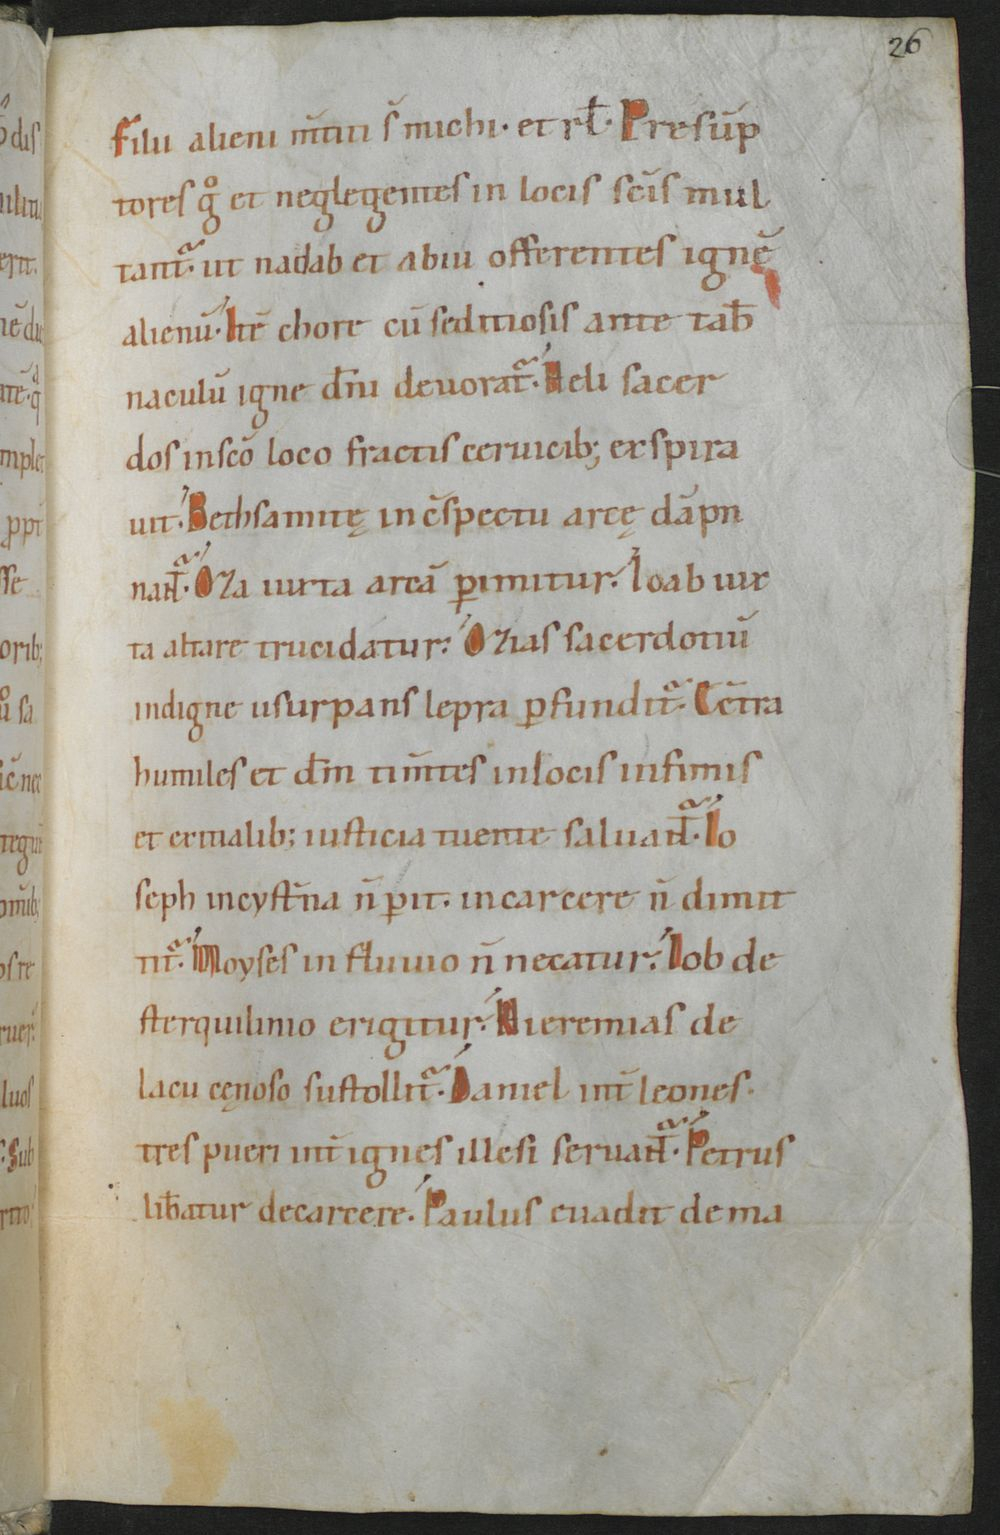 26
Filii alieni m̄titi s̄ michi· et rł· Presūp
tores gͦ et neglegentes in locis sc̄is mul
tant᷑· ut nadab et abiu offerentes ignē
alienū· Itē chore cū seditiosis ante tab̄
naculū igne dn̄i deuorat᷑· Heli sacer
dos in sc̄o loco fractis ceruicib; exspira
uit· Bethsamitę in c̄spectu arcę dāpn
nant᷑· Oza iuxta arcā ꝑimitur· Ioab iux
ta altare trucidatur· Ozias sacerdotiū
indigne usurpans lepra ꝑfundit᷑· Cēt̄ra
humiles et dn̄m tim̄tes in locis infimis
et exitialib; iusticia tuente saluant᷑· Io
seph in cyst̄na n̄ ꝑit· in carcere n̄ dimit
tit᷑· Moyses in fluuio n̄ necatur· Iob de
sterquilinio erigitur· Hieremias de
lacu cęnoso sustollit᷑· Daniel int̄ leones·
tres pueri int̄ ignes illesi seruant᷑· Petrus
lib̄atur de carcere· Paulus euadit de ma